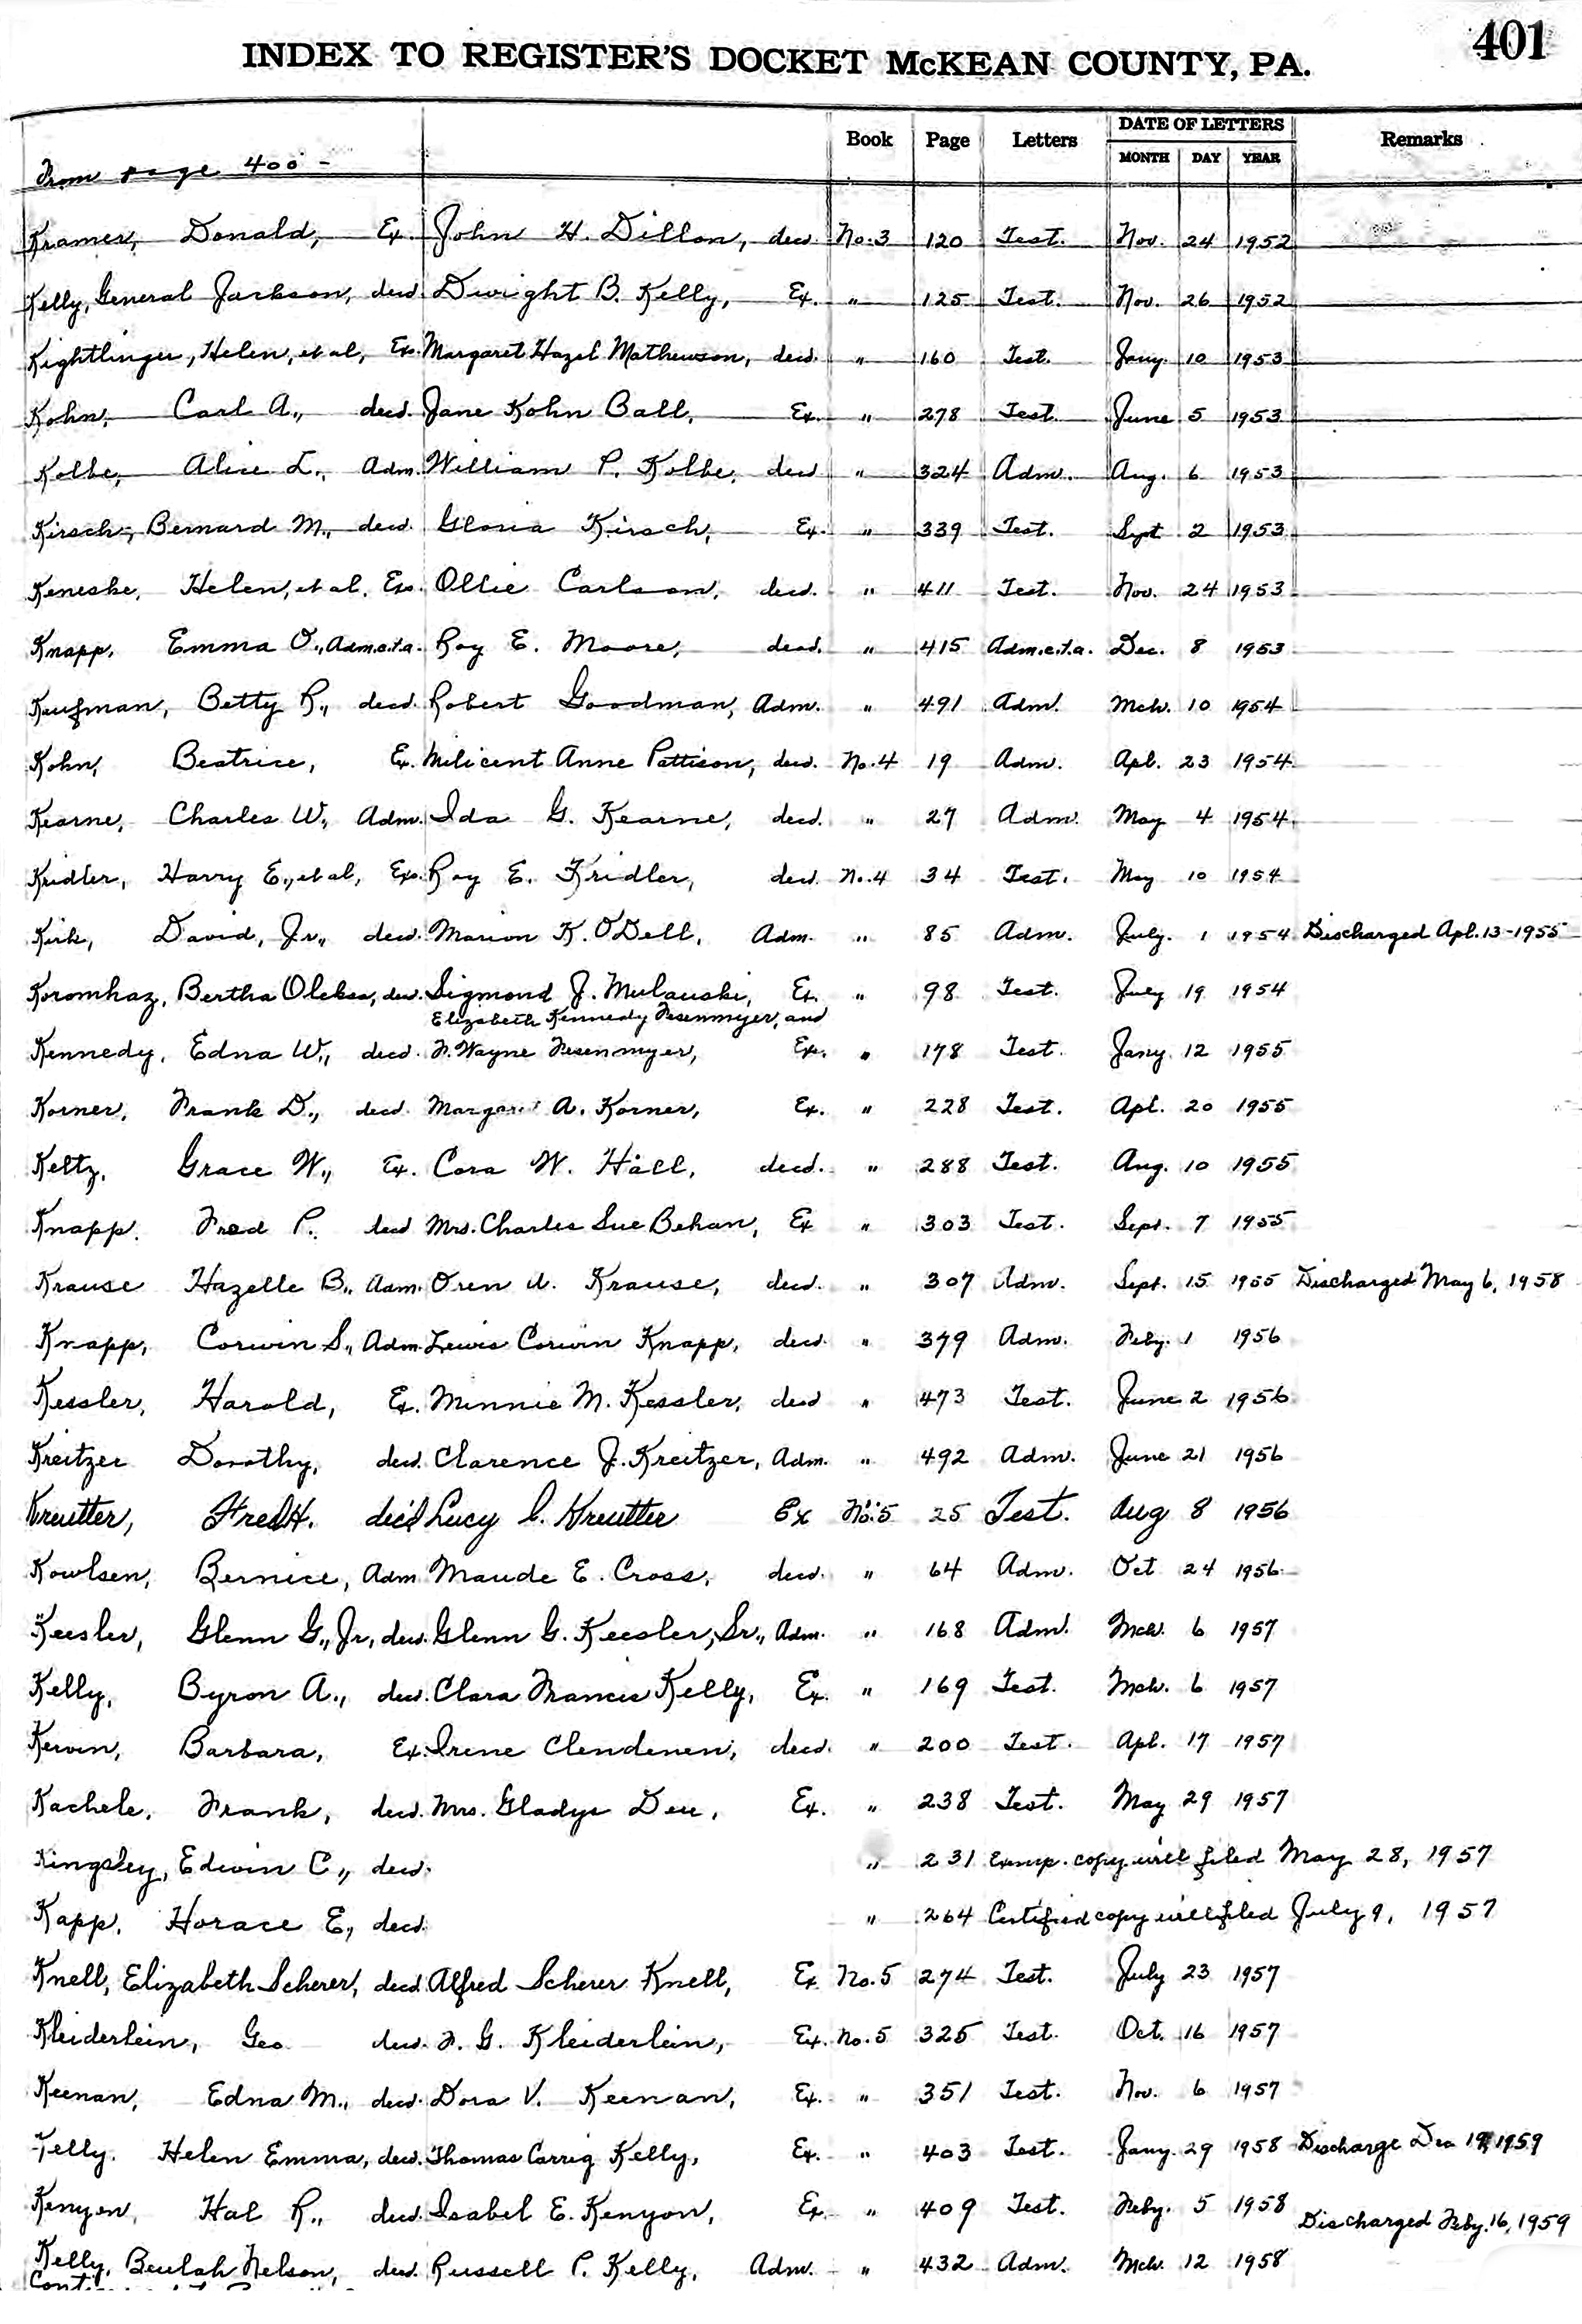 401
INDEX TO REGISTER'S DOCKET McKEAN COUNTY, PA.
Book Page Letters DATE OF LETTERS Remarks
MONTH DAY YEAR
From page 400 -
Kramer, Donald, Ex. John H. Dillon, decd. No. 3 120 Test. Nov. 24 1952
Kelly, General Jackson, decd Dwight B. Kelly, Ex. " 125 Test. Nov. 26 1952
Kightlinger, Helen, et al, Exs. Margaret Hazel Mathewson, decd. " 160 Test. Jany. 10 1953
Kohn, Carl A., decd. Jane Kohn Ball, Ex. " 278 Test. June 5 1953
Kolbe, Alice L., Adm. William P. Kolbe, decd " 324 Adm. Aug. 6 1953
Kirsch, Bernard M., decd. Gloria Kirsch, Ex. " 339 Test. Sept 2 1953
Keneske, Helen, et al, Exs. Ollie Carlson, decd. " 411 Test. Nov. 24 1953
Knapp, Emma O., Adm.c.t.a. Roy E. Moore, decd. " 415 Adm.c.t.a. Dec. 8 1953
Kaufman, Betty R., decd. Robert Goodman, Adm. " 491 Adm. Mch. 10 1954
Kohn, Beatrice, Ex. Milicent Anne Pattison, decd. No. 4 19 Adm. Apl. 23 1954
Kearne, Charles W., Adm. Ida G. Kearne, decd. " 27 Adm. May 4 1954
Kridler, Harry E., et al, Exs. Roy E. Kridler, decd. No. 4 34 Test. May 10 1954
Kirk, David, Jr., decd. Marion K. O'Dell, Adm. " 85 Adm. July. 1 1954 Discharged Apl. 13-1955
Koromhaz, Bertha Oleksa, dec. Sigmond J. Mulauski, Ex. " 98 Test. July 19 1954
Elizabeth Kennedy Fesenmyer, and
Kennedy, Edna W., decd. F. Wayne Fesenmyer, Exs. " 178 Test. Jany. 12 1955
Korner, Frank D., decd. Margaret A. Korner, Ex. " 228 Test. Apl. 20 1955
Keltz, Grace W., Ex. Cora W. Hall, decd. " 288 Test. Aug. 10 1955
Knapp. Fred P. decd Mrs. Charles Sue Behan, Ex " 303 Test. Sept. 7 1955
Krause Hazelle B., Adm. Oren U. Krause, decd. " 307 Adm. Sept. 15 1955 Discharged May 6, 1958
Knapp, Corwin S., Adm. Lewis Corwin Knapp, decd. " 379 Adm. Feby. 1 1956
Kessler, Harold, Ex. Minnie M. Kessler, decd " 473 Test. June 2 1956
Kreitzer Dorothy, decd. Clarence J. Kreitzer, Adm. " 492 Adm. June 21 1956
Kreutter, Fred H. dec'd Lucy C. Kreutter Ex No. 5 25 Test. Aug 8 1956
Kowlsen, Bernice, Adm Maude E. Cross, decd. " 64 Adm. Oct 24 1956
Keesler, Glenn G., Jr, decd. Glenn G. Keesler, Sr., Adm. " 168 Adm. Mch. 6 1957
Kelly, Byron A., decd. Clara Francis Kelly, Ex. " 169 Test. Mch. 6 1957
Kervin, Barbara, Ex. Irene Clendenen, decd. " 200 Test. Apl. 17 1957
Kachele, Frank, decd. Mrs. Gladys Deu, Ex. " 238 Test. May 29 1957
Kingsley, Edwin C., decd. " 231 Exmp. copy will filed May 28, 1957
Kapp, Horace E, decd. " 264 Certified copy will filed July 9, 1957
Knell, Elizabeth Scherer, decd Alfred Scherer Knell, Ex No. 5 274 Test. July 23 1957
Kleiderlein, Geo decd. F. G. Kleiderlein, Ex. No. 5 325 Test. Oct. 16 1957
Keenan, Edna M., decd. Dora V. Keenan, Ex. " 351 Test. Nov. 6 1957
Kelly. Helen Emma, decd. Thomas Carrig Kelly, Ex. " 403 Test. Jany. 29 1958 Discharge Dec 19, 1959
Kenyon, Hal R., decd. Isabel E. Kenyon, Ex. " 409 Test. Feby. 5 1958 Discharged Feby. 16, 1959
Kelly, Beulah Nelson, decd. Russell P. Kelly, Adm. " 432 Adm. Mch. 12 1958